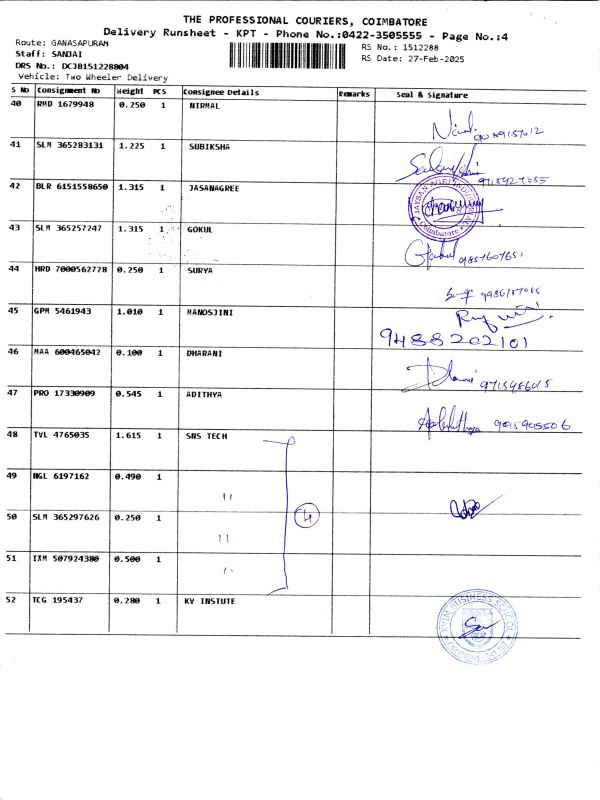 THE PROFESSIONAL COURIERS, COIMBATORE
Delivery Runsheet - KPT - Phone No.:0422-3505555 - Page No.:4
Route: GANASAPURAM
Staff: SANJAI
DRS No.: DCJB151228804
Vehicle: Two Wheeler Delivery
RS No.: 1512288
RS Date: 27-Feb-2025
S No Consignment No Weight PCS Consignee Details Remarks Seal & Signature
40 RMD 1679948 0.250 1 NIRMAL
41 SLM 365283131 1.225 1 SUBIKSHA
42 BLR 6151558650 1.315 1 JASANAGREE
43 SLM 365257247 1.315 1 GOKUL
44 HRD 7000562728 0.250 1 SURYA
45 GPM 5461943 1.010 1 MANOSJINI
9488202101
46 MAA 600465042 0.100 1 DHARANI
47 PRO 17330909 0.545 1 ADITHYA
48 TVL 4765035 1.615 1 SNS TECH
49 NGL 6197162 0.490 1 11
50 SLM 365297626 0.250 1 11
4
51 IXM 507924380 0.500 1 11
52 TCG 195437 0.280 1 KV INSTUTE